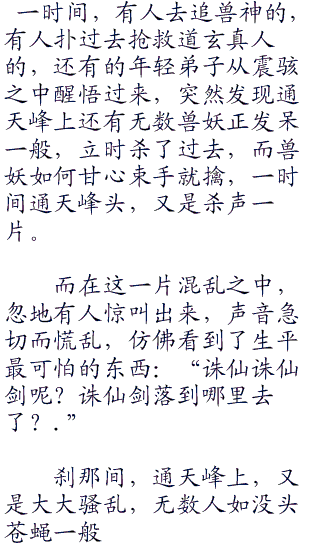 一时间，有人去追兽神的，
有人扑过去抢救道玄真人
的，还有的年轻弟子从震骇
之中醒悟过来，突然发现通
天峰上还有无数兽妖正发呆
一般，立时杀了过去，而兽
妖如何甘心束手就擒，一时
间通天峰头，又是杀声一
片。
而在这一片混乱之中，
忽地有人惊叫出来，声音急
切而慌乱，仿佛看到了生平
最可怕的东西：“诛仙诛仙
剑呢？诛仙剑落到哪里去
了？.”
刹那间，通天峰上，又
是大大骚乱，无数人如没头
苍蝇一般